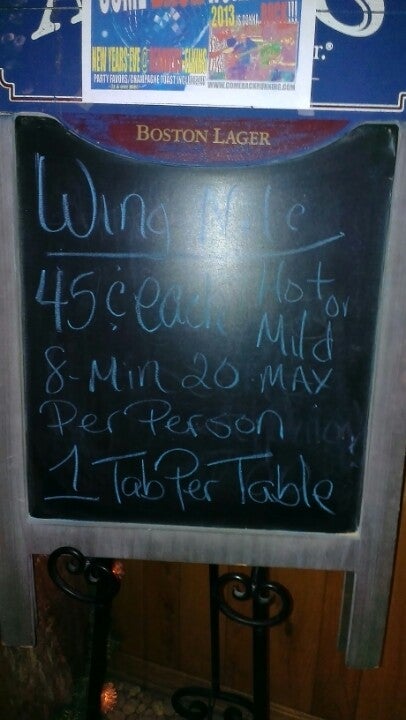 2013 IS GONNA
NEW YEARS EVE @
PARTY FAVORS/CHAMPAGNE TOAST INCLUDED
WWW.COMEBACKPUNKING.COM
BOSTON LAGER
Wing Nite
45¢ each Hot or
Mild
8-Min 20-MAX
Per Person
1 Tab Per Table